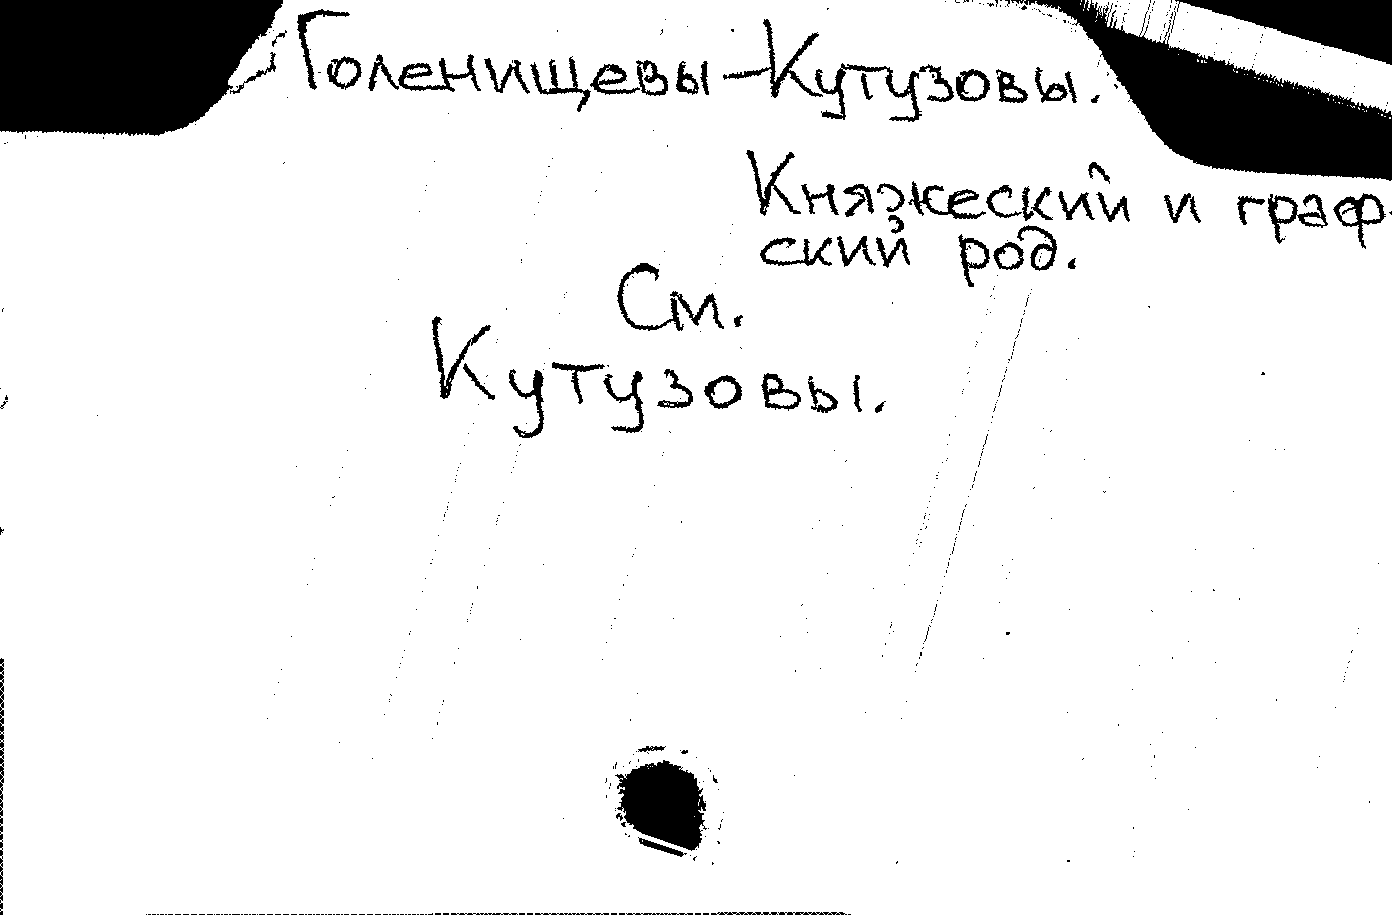 Голенищевы-Кутузовы.
Княжеский и граф-
ский род.
См.
Кутузовы.